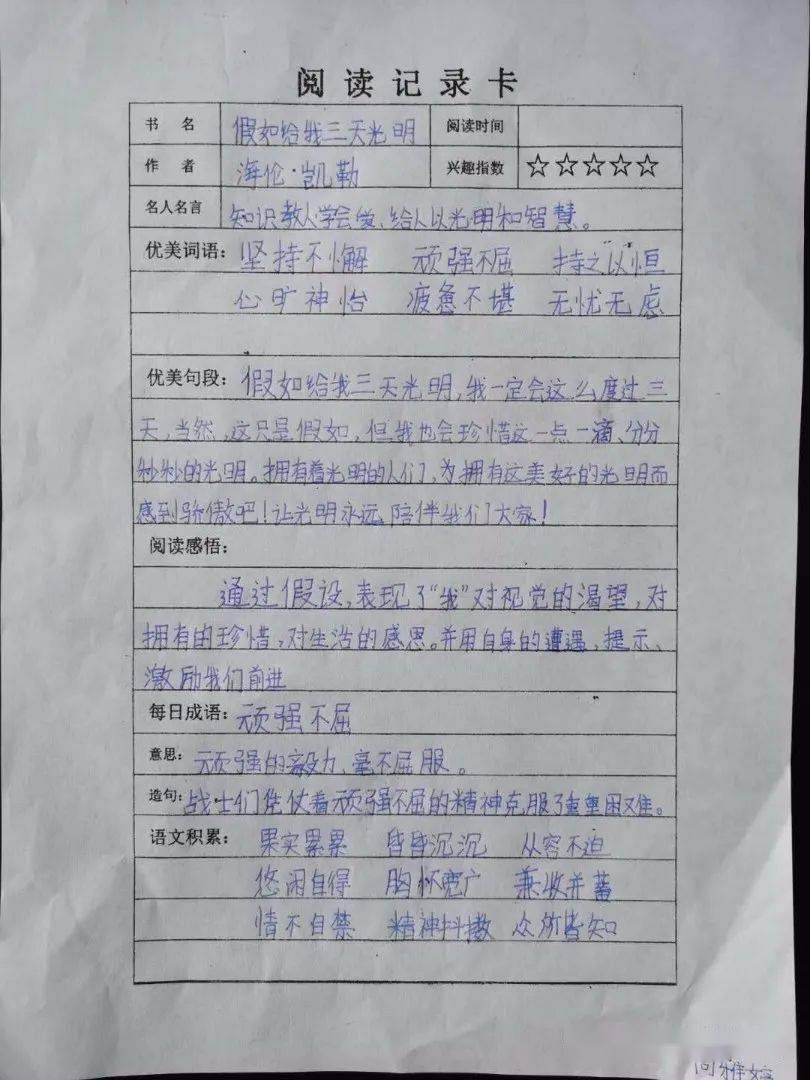 阅读记录卡
书 名 假如给我三天光明 阅读时间
作 者 海伦·凯勒 兴趣指数 ☆☆☆☆☆
名人名言 知识教人学会爱、给人以光明和智慧。
优美词语: 坚持不懈 顽强不屈 持之以恒
心旷神怡 疲惫不堪 无忧无虑
优美句段: 假如给我三天光明,我一定会这么度过三
天,当然,这只是假如,但我也会珍惜这一点一滴、分分
秒秒的光明。拥有着光明的人们,为拥有这美好的光明而
感到骄傲吧!让光明永远陪伴我们大家!
阅读感悟:
通过假设,表现了“我”对视觉的渴望,对
拥有的珍惜,对生活的感恩。并用自身的遭遇,提示、
激励我们前进
每日成语: 顽强不屈
意思: 顽强的毅力、毫不屈服。
造句: 战士们凭仗着顽强不屈的精神克服了重重困难。
语文积累: 果实累累 昏昏沉沉 从容不迫
悠闲自得 胸怀宽广 兼收并蓄
情不自禁 精神抖擞 众所皆知
雅婷